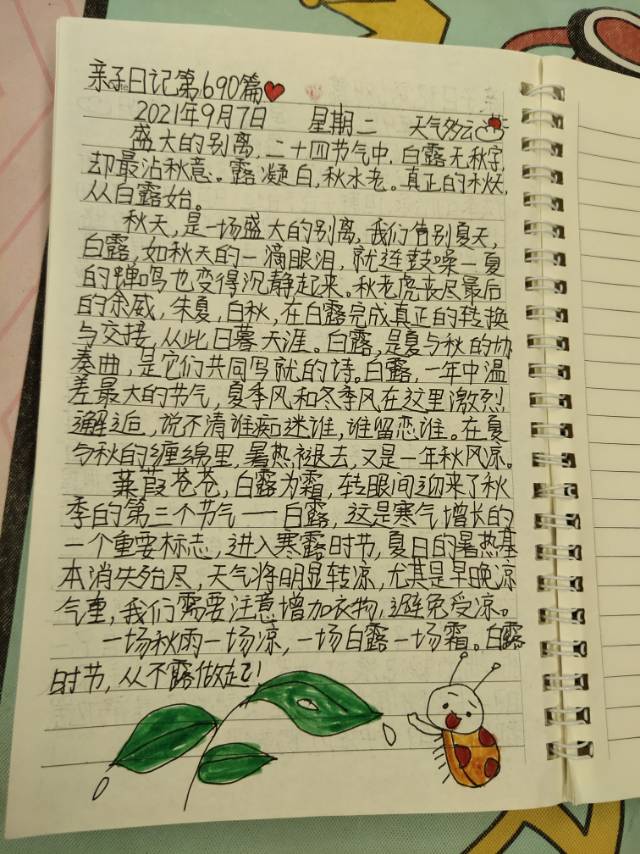 亲子日记第690篇
2021年9月7日 星期二 天气多云
盛大的别离,二十四节气中,白露无秋字,
却最沾秋意。露凝白,秋水老。真正的秋,
从白露始。
秋天,是一场盛大的别离,我们告别夏天,
白露,如秋天的一滴眼泪,就连鼓噪一夏
的蝉鸣也变得沉静起来。秋老虎丧尽最后
的余威,朱夏,白秋,在白露完成真正的转换
与交接,从此日暮天涯。白露,是夏与秋的协
奏曲,是它们共同写就的诗。白露,一年中温
差最大的节气,夏季风和冬季风在这里激烈
邂逅,说不清谁痴迷谁,谁留恋谁。在夏
与秋的缠绵里,暑热褪去,又是一年秋风凉。
蒹葭苍苍,白露为霜,转眼间迎来了秋
季的第三个节气——白露,这是寒气增长的
一个重要标志,进入寒露时节,夏日的暑热基
本消失殆尽,天气将明显转凉,尤其是早晚凉
气重,我们需要注意增加衣物,避免受凉。
一场秋雨一场凉,一场白露一场霜。白露
时节,从不露做起!